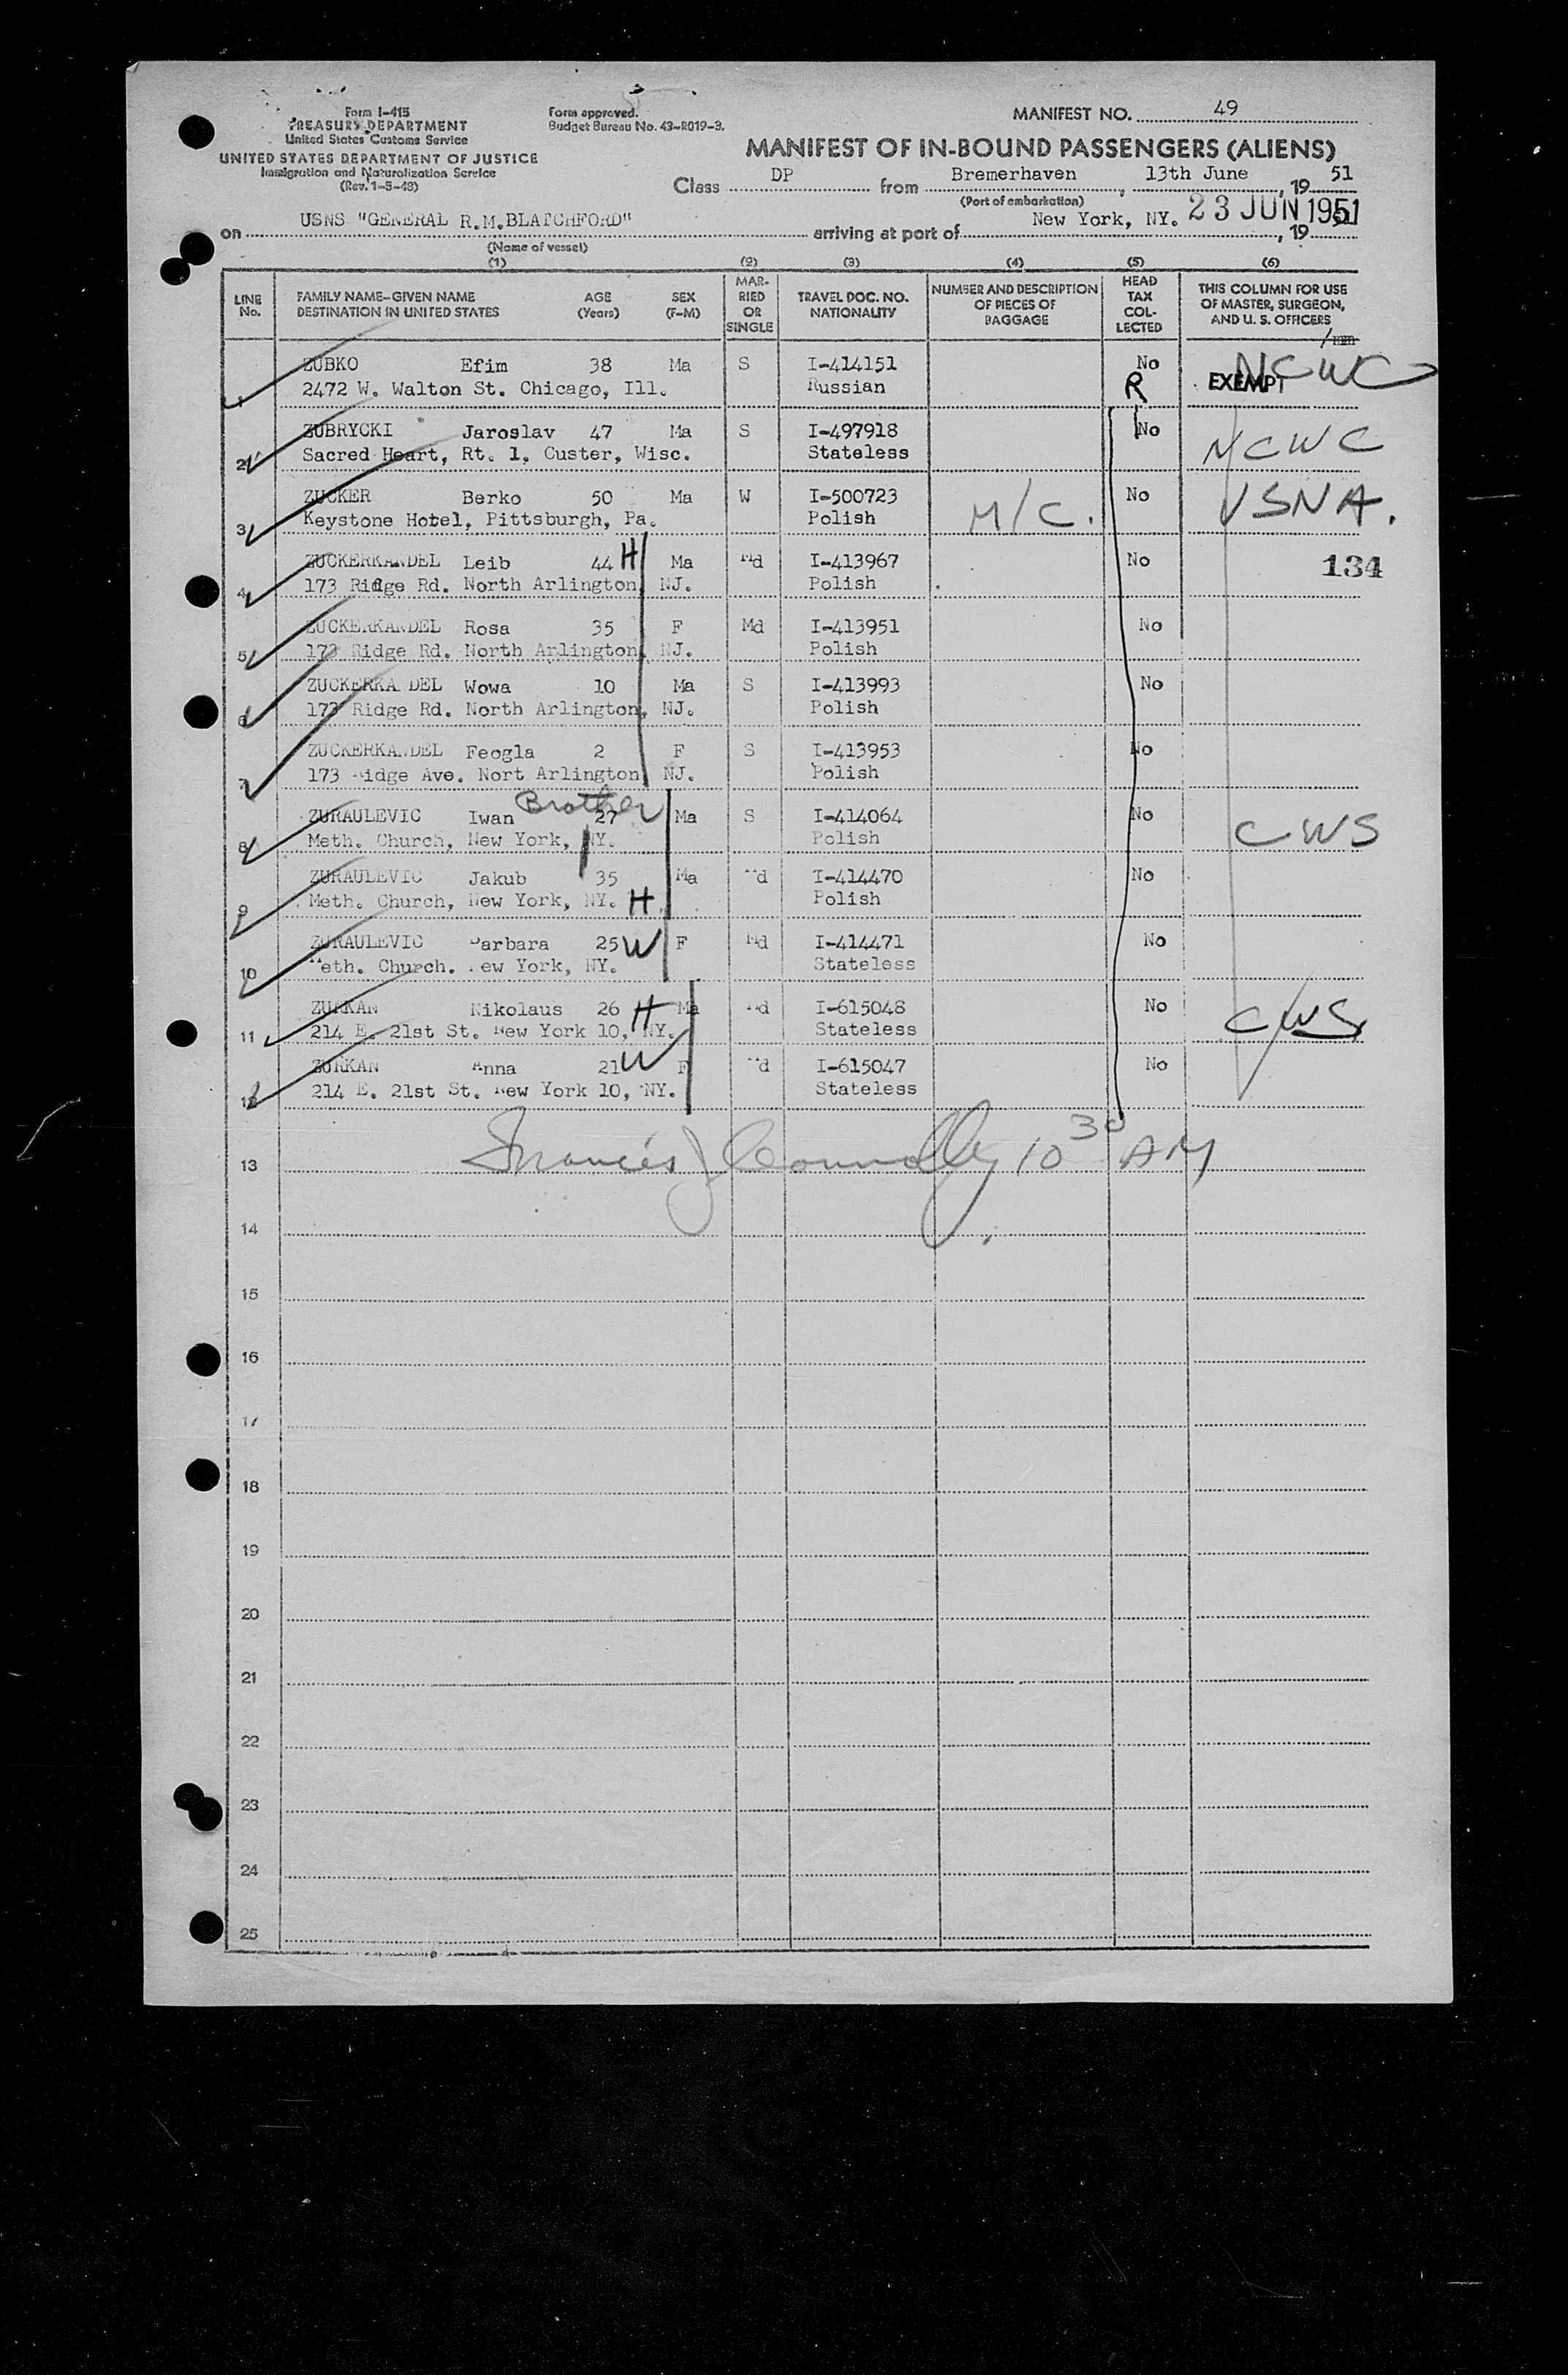 Form I-415
TREASURY DEPARTMENT
United States Customs Service
UNITED STATES DEPARTMENT OF JUSTICE
Immigration and Naturalization Service
(Rev. 1-5-48)
Form approved.
Budget Bureau No. 43-R019-3.
MANIFEST NO. 49
MANIFEST OF IN-BOUND PASSENGERS (ALIENS)
Class DP from Bremerhaven, 13th June, 19 51
(Port of embarkation)
on USNS "GENERAL R.M.BLATCHFORD" arriving at port of New York, NY. 23 JUN 1951, 19
(Name of vessel)
(1) (2) (3) (4) (5) (6)
LINE No. FAMILY NAME-GIVEN NAME DESTINATION IN UNITED STATES AGE (Years) SEX (F-M) MARRIED OR SINGLE TRAVEL DOC. NO. NATIONALITY NUMBER AND DESCRIPTION OF PIECES OF BAGGAGE HEAD TAX COLLECTED THIS COLUMN FOR USE OF MASTER, SURGEON, AND U. S. OFFICERS
1 ZUBKO Efim 38 Ma S I-414151 No NCWC
2472 W. Walton St. Chicago, Ill. Russian R EXEMPT
2 ZUBRYCKI Jaroslav 47 Ma S I-497918 No NCWC
Sacred Heart, Rt. 1, Custer, Wisc. Stateless
3 ZUCKER Berko 50 Ma W I-500723 M/C. No USNA.
Keystone Hotel, Pittsburgh, Pa. Polish
4 ZUCKERKANDEL Leib 44 H Ma Md I-413967 No 134
173 Ridge Rd. North Arlington, NJ. Polish
5 ZUCKERKANDEL Rosa 35 F Md I-413951 No
173 Ridge Rd. North Arlington, NJ. Polish
6 ZUCKERKA DEL Wowa 10 Ma S I-413993 No
173 Ridge Rd. North Arlington, NJ. Polish
7 ZUCKERKANDEL Feogla 2 F S I-413953 No
173 Ridge Ave. Nort Arlington, NJ. Polish
8 ZURAULEVIC Iwan Brother 27 Ma S I-414064 No CWS
Meth. Church, New York, NY. Polish
9 ZURAULEVIC Jakub 35 Ma Md I-414470 No
Meth. Church, New York, NY. H Polish
10 ZURAULEVIC Barbara 25 W F Md I-414471 No
Meth. Church. New York, NY. Stateless
11 ZURKAN Nikolaus 26 H Ma Md I-615048 No CWS
214 E. 21st St. New York 10, NY. Stateless
12 ZURKAN Anna 21 W F Md I-615047 No
214 E. 21st St. New York 10, NY. Stateless
13 Francis J Connolly 10 30 AM
14
15
16
17
18
19
20
21
22
23
24
25